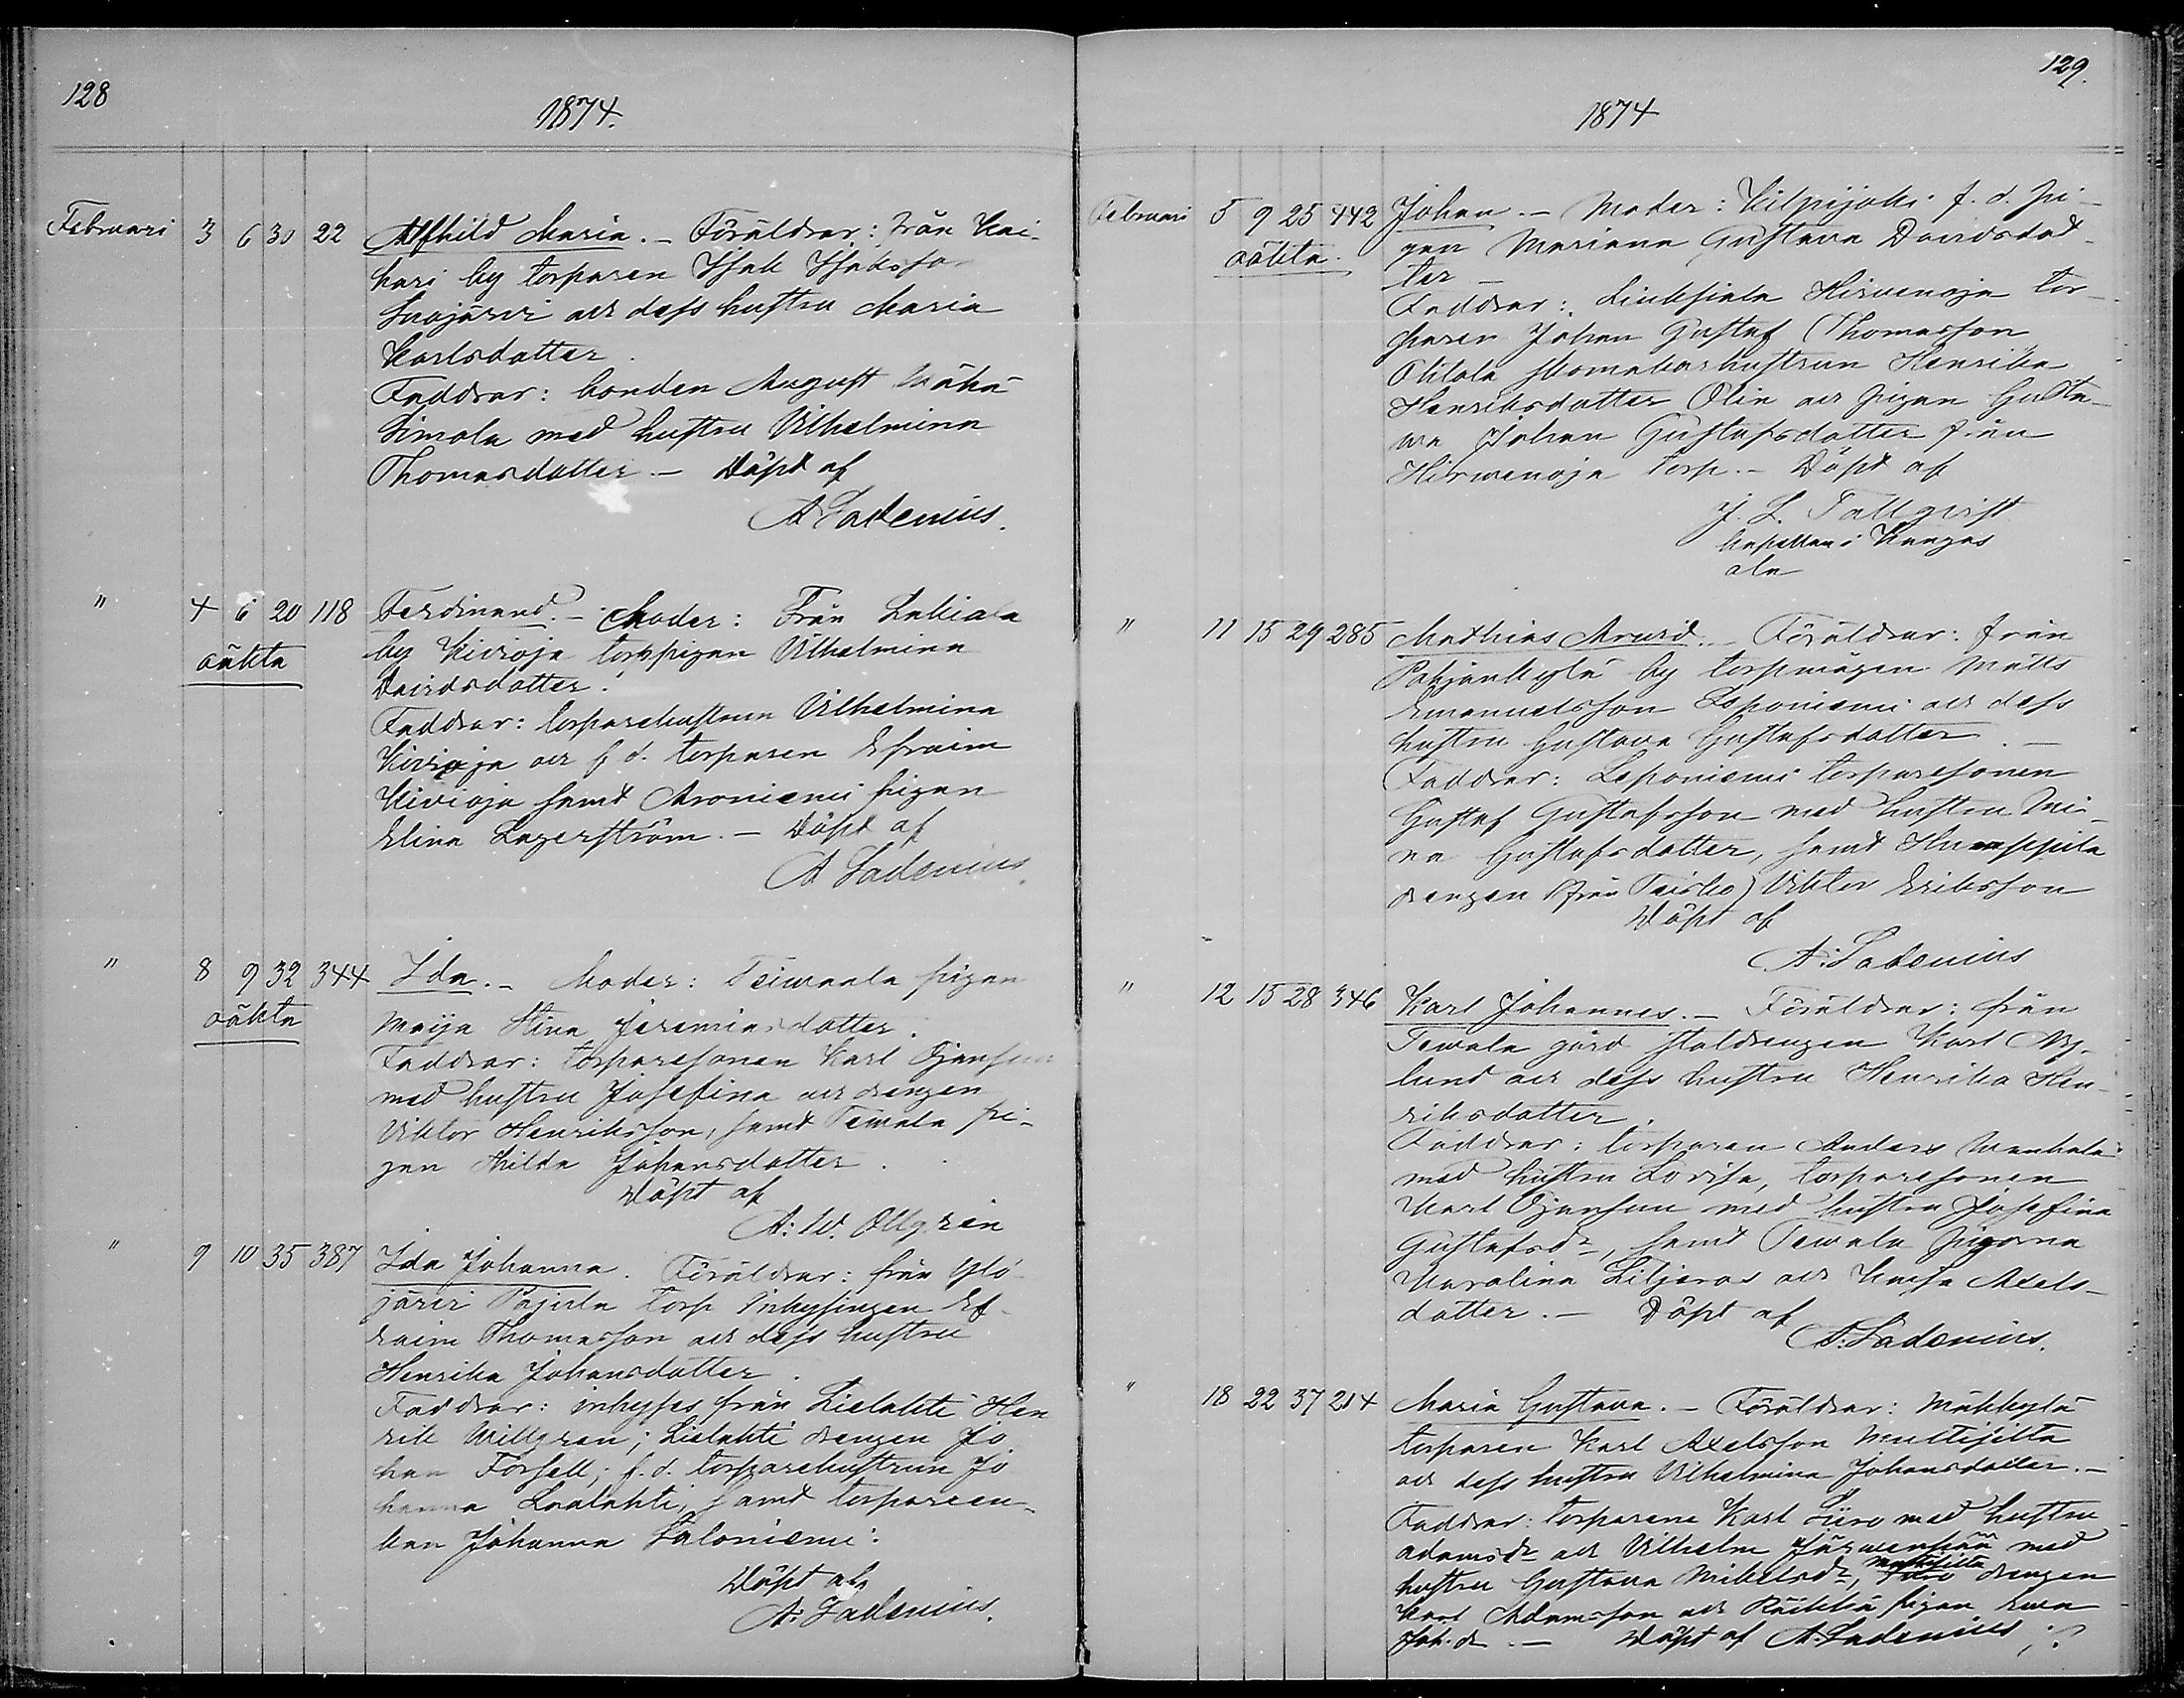 128
1874.
Februari 3 6 30 22 Alfhild Maria. – Föräldrar: från Kai-
hari by torparen Isak Isaksson
Suojärvi och dess hustru Maria
Karlsdotter.
Faddrar: bonden August Vähä
Simola med hustru Vilhelmina
Thomasdotter. – Döpt af
A Ladenius.
" 4 6 20 118 Ferdinand. – Moder: Från Lakiala
oäkta by Kivioja torp pigan Vilhelmina
Davidsdotter.
Faddrar: torparehustrun Vilhelmina
Kivioja och f d. torparen Efraim
Kivioja samt Aroniemi pigan
Elina Lagerström. – Döpt af
A Ladenius.
" 8 9 32 344 Ida. – Moder: Teivaala pigan
oäkta Maija Stina Jeremiasdotter.
Faddrar: torparesonen Karl Ojansuu
med hustru Josefina och drengen
Viktor Henriksson, samt Teivala pi-
gan Hilda Johansdotter.
Döpt af
A. W. Ollgren
" 9 10 35 387 Ida Johanna. Föräldrar: från Ylö-
järvi Pajula torp inhysingen Ef-
raim Thomasson och dess hustru
Henrika Johansdotter.
Faddrar: inhyses från Lielahti Hen
rik Willgren; Lielahti drengen Jo
han Forsell; f. d. torparehustrun Jo
hanna Laalahti, samt torpareen-
kan Johanna Saloniemi.
Döpt af
A. Ladenius.
129.
1874
Februari 5 9 25 442 Johan. – Moder: Kilpijoki f. d. pi-
oäkta. gan Mariana Gustava Davidsdot-
ter –
Faddrar: Liuksiala Hirvenoja tor-
paren Johan Gustaf Thomasson
Ohtola skomakarhustrun Henrika
Henriksdotter Olin och pigan Gusta-
va Johan Gustafsdotter från
Hirwenoja torp. – Döpt af
J. L. Tallqvist
kapellan i Kangas
ala
" 11 15 29 285 Mathias Arvid. – Föräldrar: från
Pohjankylä by torpmågen Matts
Emanuelsson Leponiemi och dess
hustru Gustava Gustafsdotter. –
Faddrar: Leponiemi torparesonen
Gustaf Gustafsson med hustru Mi-
na Gustafsdotter, samt
drengen (från Teisko) Viktor Eriksson
Döpt af
A. Ladenius
" 12 15 28 346 Karl Johannes. – Föräldrar: från
Tewala gård stalldrengen Karl Ny-
lund och dess hustru Henrika Hen-
riksdotter.
Faddrar: torparen Anders Wanhala
med hustru Lovisa, torparesonen
Karl Ojansuu med hustru Josefina
Gustafsdr, samt Tewala pigorna
Karolina Liljeroos och Kaisa Axels-
dotter. – Döpt af
A. Ladenius.
" 18 22 37 214 Maria Gustava. – Föräldrar: Mäkkylä
torparen Karl Axelsson Multisilta
och dess hustru Vilhelmina Johansdotter. –
Faddrar: torparene Karl Siiro med hustru
Adamsdr och Vilhelm Järwenpää med
hustru Gustava Mikelsdr, Multisilta drengen
Karl Adamsson och Räikkä pigan Eva
Joh. dr. – Döpt af A. Ladenius